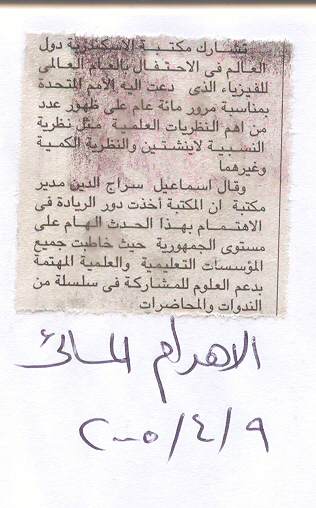 تشارك مكتبة الاسكندرية دول
العالم فى الاحتفال بالعام العالمى
للفيزياء الذى دعت اليه الأمم المتحدة
بمناسبة مرور مائة عام على ظهور عدد
من اهم النظريات العلمية مثل نظرية
النسبية لاينشتين والنظرية الكمية
وغيرهما
وقال اسماعيل سراج الدين مدير
مكتبة ان المكتبة أخذت دور الريادة فى
الاهتمام بهذا الحدث الهام على
مستوى الجمهورية حيث خاطبت جميع
المؤسسات التعليمية والعلمية المهتمة
بدعم العلوم للمشاركة فى سلسلة من
الندوات والمحاضرات
الاهرام المسائى
٢٠٠٥/٤/٩